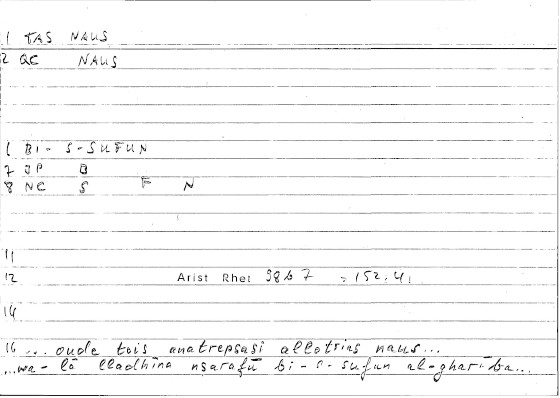 1 TAS NAUS
2 QC NAUS
1 BI- S-SUFUN
7 JP B
8 NC S F N
11
12 Arist Rhet 98b7 = 152.4.
14
16 ... oude tois anatrepsasi allotrias naus...
...wa-lā lladhīna nṣarafū bi-s-sufun al-gharība...